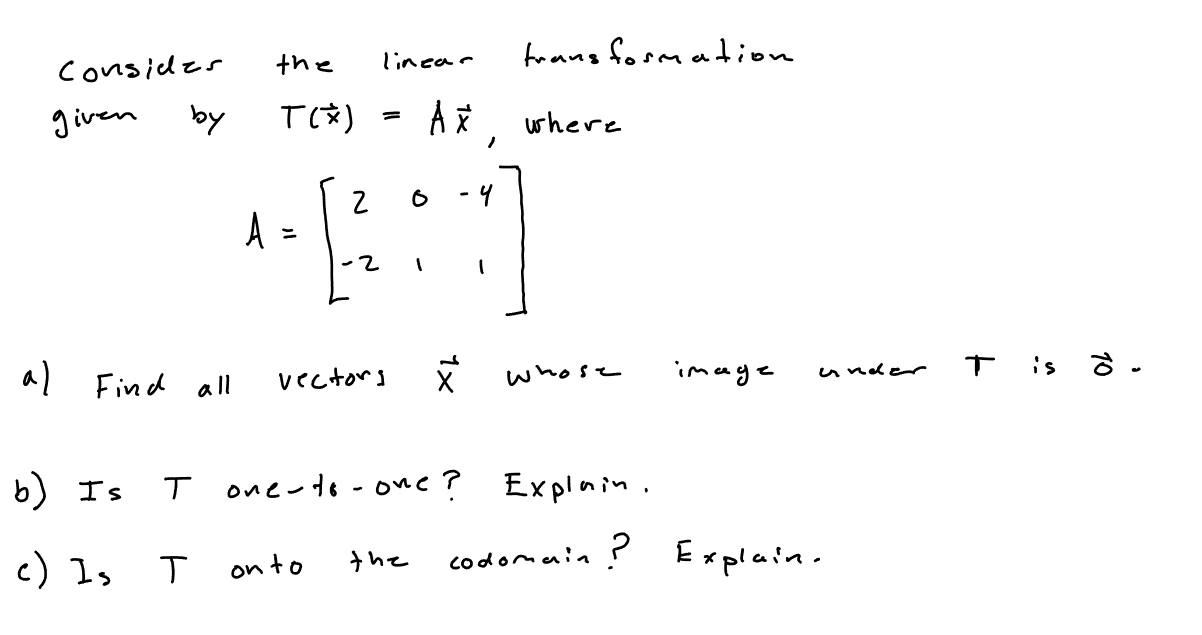 Consider the linear transformation
given by T(x⃗) = Ax⃗, where
A = [ 2 0 -4
-2 1 1 ]
a) Find all vectors x⃗ whose image under T is 0⃗.
b) Is T one-to-one? Explain.
c) Is T onto the codomain? Explain.